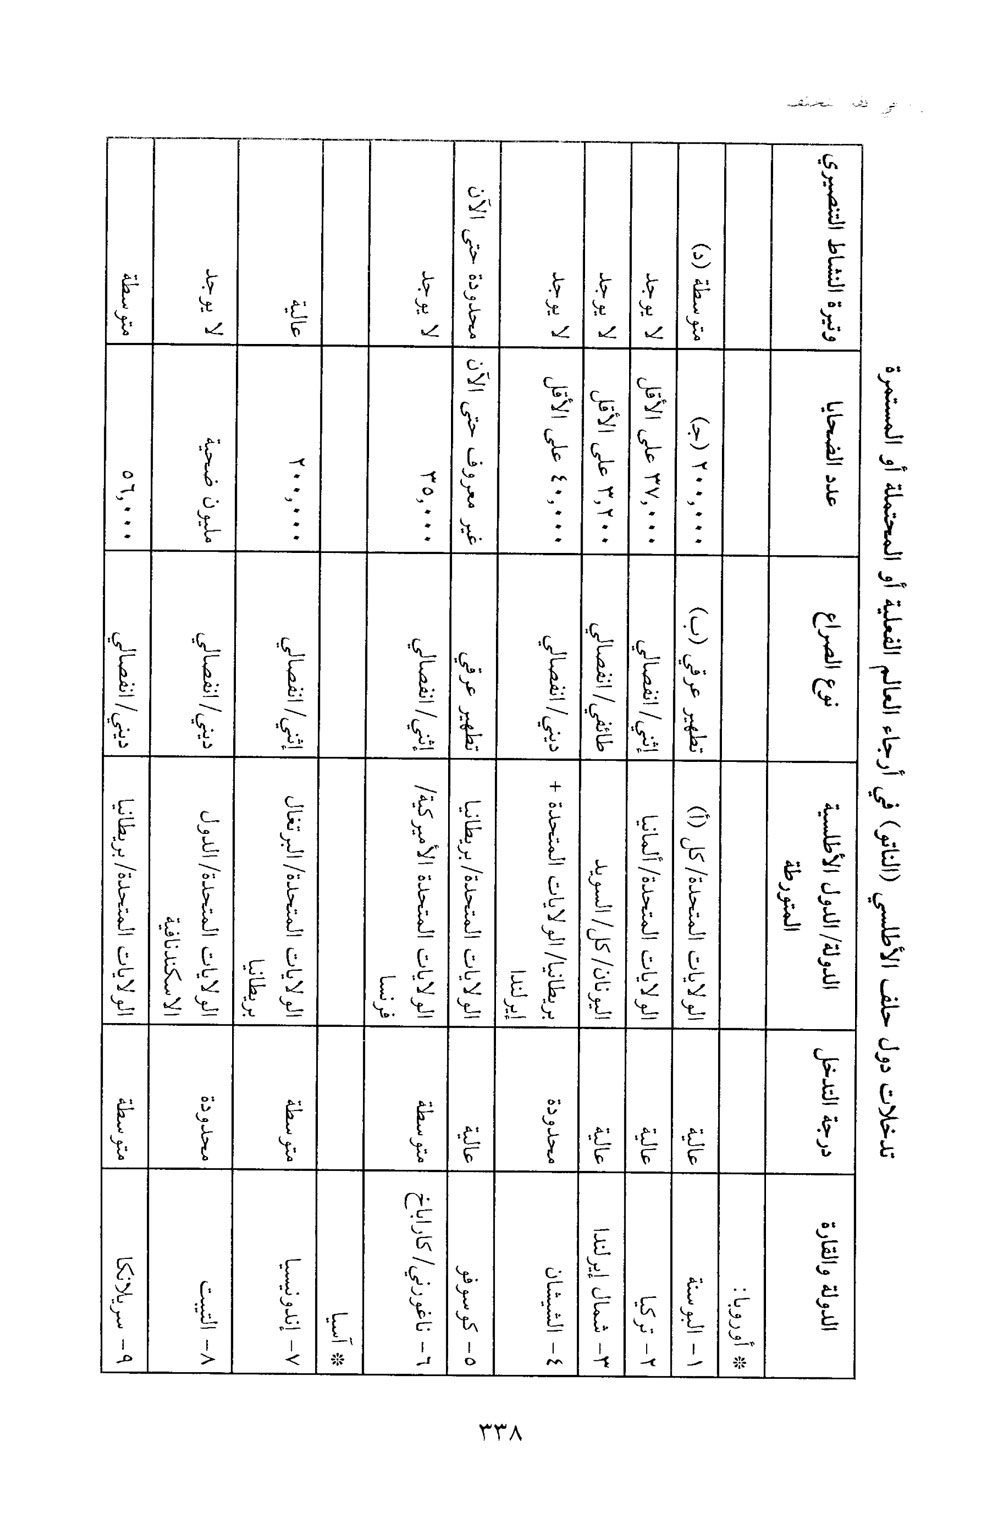 تدخلات دول حلف الأطلسي (الناتو) في أرجاء العالم الفعلية أو المحتملة أو المستمرة
الدولة والقارة | درجة التدخل | الدولة/ الدول الأطلسية المتورطة | نوع الصراع | عدد الضحايا | وتيرة النشاط التنصيري
* أوروبا:
١ - البوسنة | عالية | الولايات المتحدة/ كل (أ) | تطهير عرقي (ب) | ٢٠٠,٠٠٠ (ج) | متوسطة (د)
٢ - تركيا | عالية | الولايات المتحدة/ ألمانيا | إثني/ انفصالي | ٣٧,٠٠٠ على الأقل | لا يوجد
٣ - شمال إيرلندا | عالية | اليونان/ كل/ السويد | طائفي/ انفصالي | ٣,٢٠٠ على الأقل | لا يوجد
٤ - الشيشان | محدودة | بريطانيا/ الولايات المتحدة + إيرلندا | ديني/ انفصالي | ٤٠,٠٠٠ على الأقل | لا يوجد
٥ - كوسوفو | عالية | الولايات المتحدة/ بريطانيا | تطهير عرقي | غير معروف حتى الآن | محدودة حتى الآن
٦ - ناغورني/ كاراباخ | متوسطة | الولايات المتحدة الأميركية/ فرنسا | إثني/ انفصالي | ٣٥,٠٠٠ | لا يوجد
* آسيا
٧ - إندونيسيا | متوسطة | الولايات المتحدة/ البرتغال بريطانيا | إثني/ انفصالي | ٢٠٠,٠٠٠ | عالية
٨ - التيبت | محدودة | الولايات المتحدة/ الدول الاسكندنافية | ديني/ انفصالي | مليون ضحية | لا يوجد
٩ - سريلانكا | متوسطة | الولايات المتحدة/ بريطانيا | ديني/ انفصالي | ٥٦,٠٠٠ | متوسطة
٣٣٨